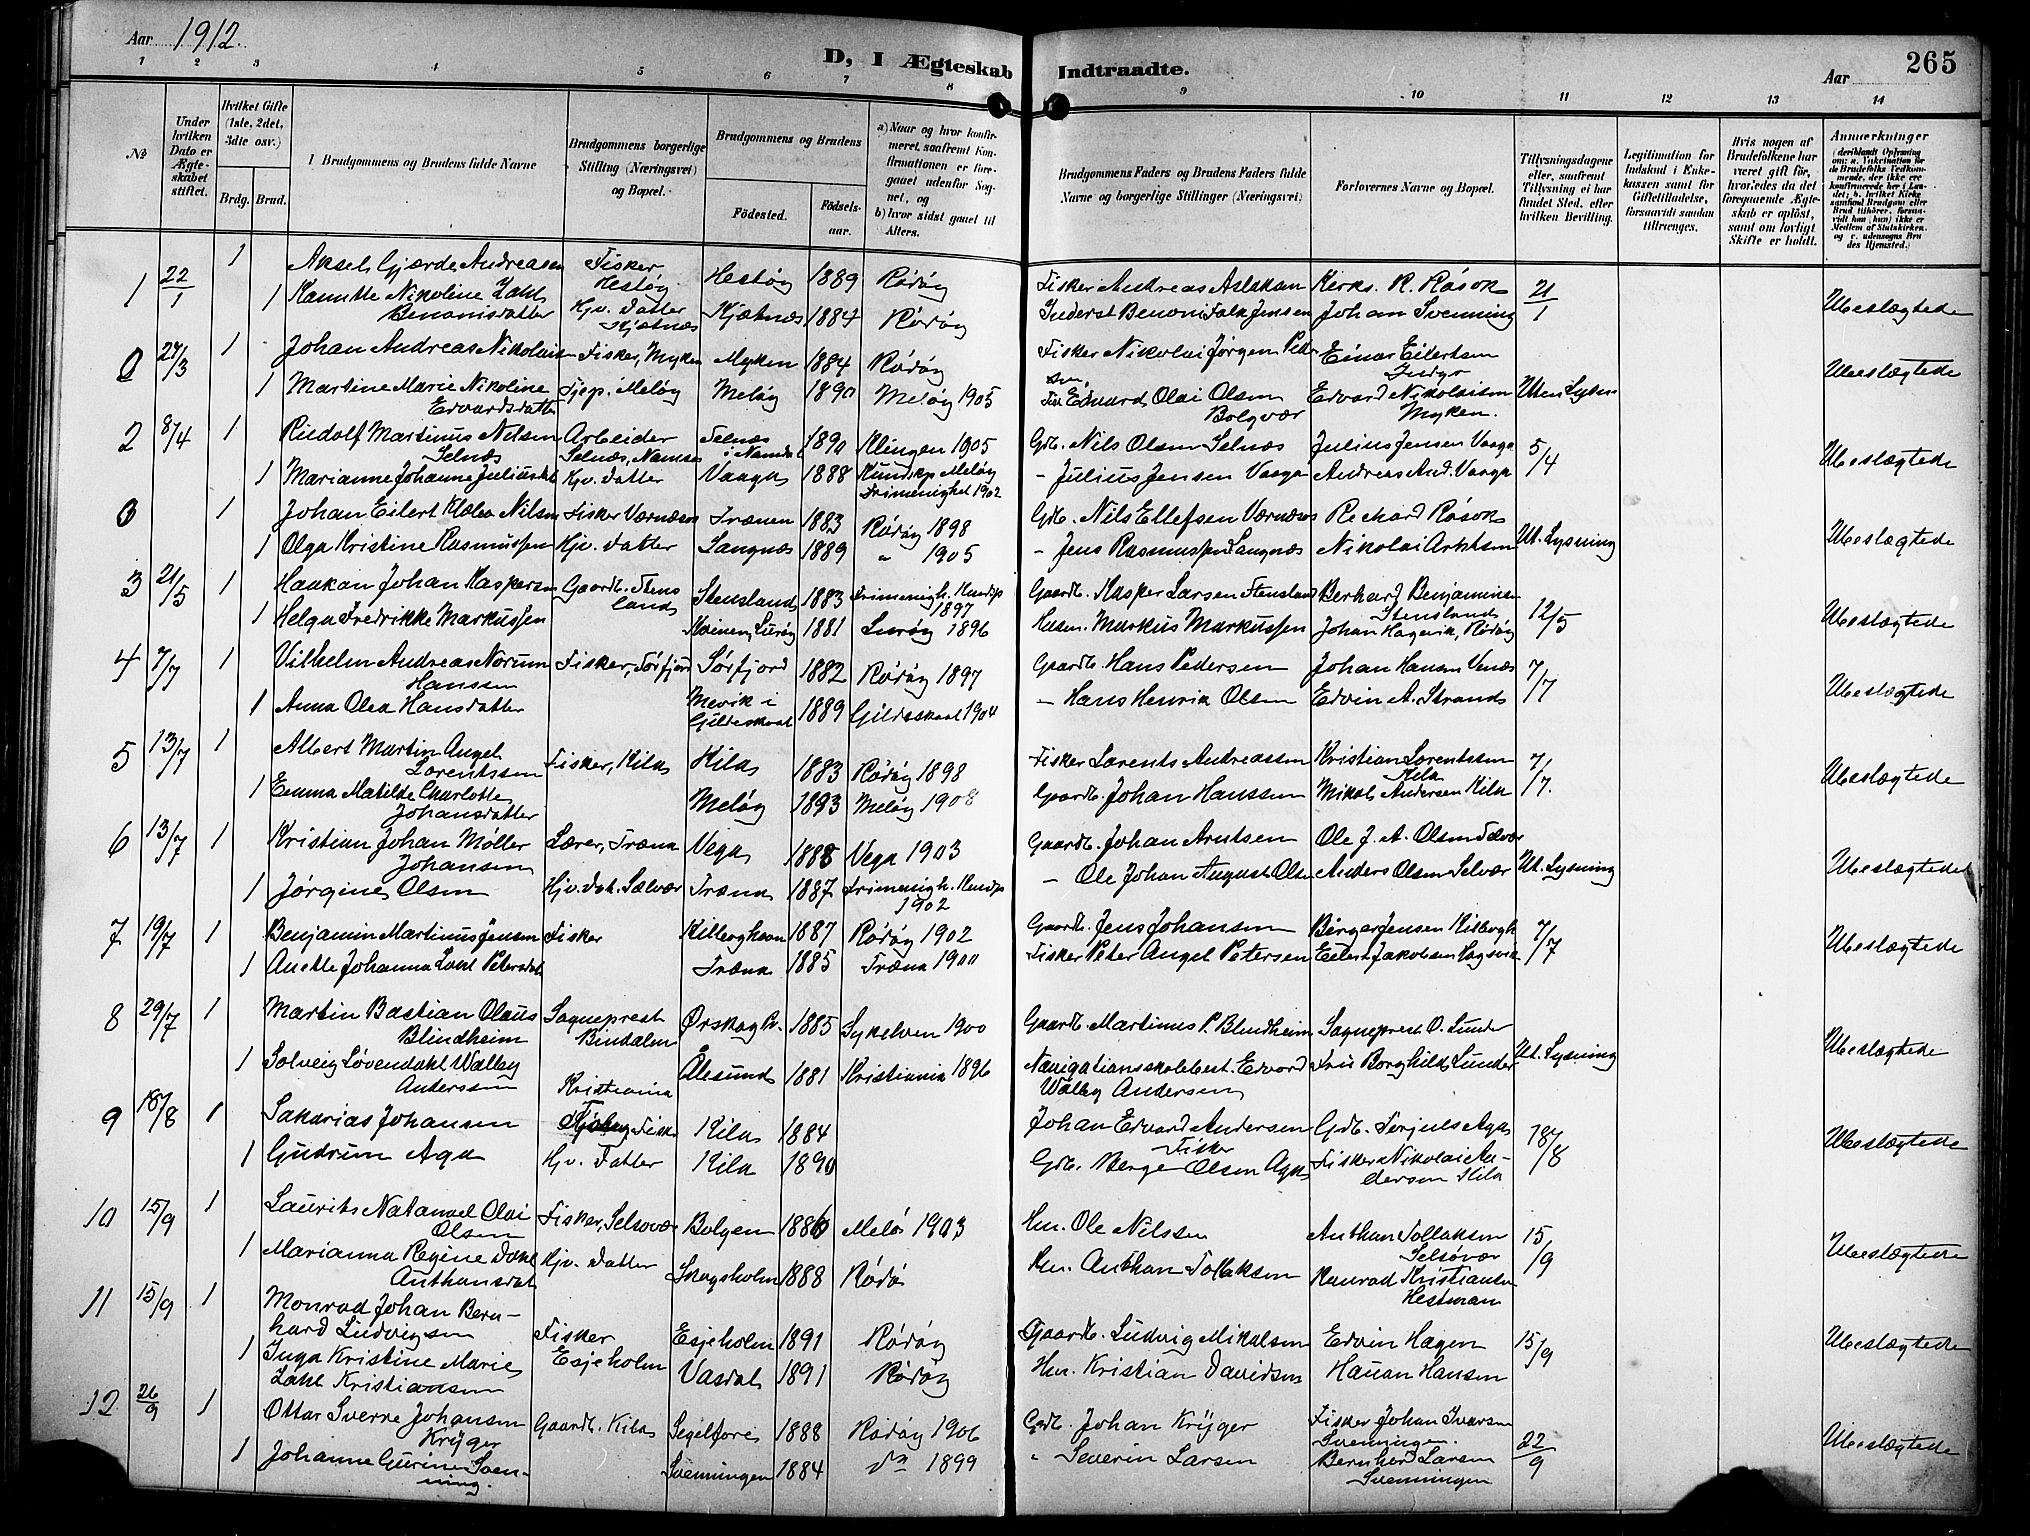 Aar 1912.
D, I Ægteskab Indtraadte.
Aar
265
1 2 3 4 5 6 7 8 9 10 11 12 13 14
№
Under hvilken Dato er Ægteskabet stiftet.
Hvilket Gifte (1ste, 2det, 3die osv.)
Brdg. Brud.
Brudgommens og Brudens fulde Navne
Brudgommens borgerlige Stilling (Næringsvei) og Bopæl.
Brudgommens og Brudens
Fødested.
Fødselsaar.
a) Naar og hvor konfirmeret, saafremt Konfirmationen er foregaaet udenfor Sognet, og
b) hvor sidst gaaet til Alters.
Brudgommens Faders og Brudens Faders fulde Navne og borgerlige Stillinger (Næringsvei)
Forlovernes Navne og Bopæl.
Tillysningsdagene eller, saafremt Tillysning ei har fundet Sted, efter hvilken Bevilling.
Legitimation for Indskud i Enkekassen samt for Giftetilladelse, forsaavidt saadan tiltrænges.
Hvis nogen af Brudefolkene har været gift før, hvorledes da det foregaaende Ægteskab er opløst, samt om lovligt Skifte er holdt.
Anmærkninger
1 22/1 1 Aksel Gjærde Andreasen Fisker Hestøy Hestøy 1889 Rødøy Fisker Andreas Aslaksen Kirks. R. Røsok 21/1 Ubeslægtede
1 Hanette Nikoline Zahl Benonisdatter Hjv. Datter Kjøtnes Kjøtnes 1884 Rødøy Inderst Benoni Falk Jensen Johan Svenning
0 24/3 1 Johan Andreas Nikolaisen Fisker, Myken Myken 1884 Rødøy Fisker Nikolai Jørgen Pedersen, Einar Eilertsen Indyr Uten Lysn Ubeslægtede
1 Martine Marie Nikoline Edvardsdatter Tjep. Meløy Meløy 1890 Meløy 1905 Fisk Edvard Olai Olsen Bolgvær Edvard Nikolaisen Myken.
2 8/4 1 Rudolf Martinus Nilsen Selnæs Arbeider Selnæs, Namsos Selnæs i Namdal 1890 Klingen 1905 Gdb. Nils Olsen Selnæs Julius Jensen Vaaga 5/4 Ubeslægtede
1 Marianne Johanne Juliusdat Hjv. Datter Vaaga 1888 Kundskp Meløy Frimenighet 1902 - Julius Jensen Vaaga Andreas And. Vaaga
0 1 Johan Eilert Klæbo Nilsen Fisker Værnæsos Trænen 1883 Rødøy 1898 Gdb. Nils Ellefsen Værnæsos Rechard Røsok Ut. Lysning Ubeslægtede
1 Olga Kristine Rasmussen Hjv. Datter Langnæs 1889 " 1905 - Jens Rasmussen Langnæs Nikolai Arntsen
3 21/5 1 Haakan Johan Kaspersen Gaardb. Stensland Stensland 1883 Frimenigh. Kundsp 1897 Gaardb. Kasper Larsen Stensland Berhard Benjaminsen Stensland 12/5 Ubeslægtede
1 Helga Fredrikke Markussen Kvinen, Lurøy 1881 Lurøy 1896 Husm. Markus Markussen Johan Hagevik, Rødøy
4 7/7 1 Vilhelm Andreas Norum Hanssen Fisker, Sørfjord Sørfjord 1882 Rødøy 1897 Gaardb. Hans Pedersen Johan Hansen Venæs 7/7 Ubeslægtede
1 Anna Olea Hansdatter Mevik i Gildeskaal 1889 Gildeskaal 1904 - Hans Henrik Olsen Edvin A. Strands
5 13/7 1 Albert Martin Angel Lorentssen Fisker, Kila Kila 1883 Rødøy 1898 Fisker Lorents Andreassen Kristian Lorentssen Kila 7/7. Ubeslægtede
1 Emma Matilde Charlotte Johansdatter Meløy 1893 Meløy 1908 Gaardb. Johan Hanssen Mikal Andersen Kila
6 13/7 1 Kristian Johan Møller Johansen Lærer, Træna Vega 1888 Vega 1903 Gaardb. Johan Arntsen Ole J. A. Olsen Selvær Ut. Lysning Ubeslægtede
1 Jørgine Olsen Hjv. dat. Sælvær Træna 1887 Frimenigh. Kundsp 1902 - Ole Johan August Olsen Anders Olsen Selvær
7 19/7 1 Benjamin Martinus Jensen Fisker Kilboghavn 1887 Rødøy 1902 Gaardb. Jens Johansen Birger Jensen Kilbogh 7/7 Ubeslægtede
1 Anette Johanna Zahl Petersdat Træna 1885 Træna 1900 Fisker Peter Angel Petersen Eilert Jakobsen Hagsvik
8 29/7 1 Martin Bastian Olaus Blindheim Sogneprest Bindalen Ørskog Pr. 1885 Sykelven 1900 Gaardb. Martinus P. Blindheim Sogneprest O. Lunder Ut. Lysning Ubeslægtede
1 Solveig Løvendahl Walley Anderssen Kristiania Ålesund 1881 Kristiania 1896 Navigationsskolebest. Edvard Walley Andersen Fru Borghild Lunder
9 18/8 1 Sakarias Johansen Fisk Kila 1884 Johan Edvard Andersen Fisker Gdb. Torjuls Aga 18/8 Ubeslægtede
1 Gudrun Aga Hjv. Datter Kila 1890 Gdb. Børge Olsen Aga Fisker Nikolai Andersen Kila
10 15/9 1 Laurits Natanael Olai Olsen Fisker, Selsøvær Bolgen 1886 Melø 1903 Hm. Ole Nilssen Anthan Tollaksen Selsøvær 15/9 Ubeslægtede
1 Marianna Regine Dahl Anthansdat Hjv. Datter Skogsholm 1888 Rødø Hm. Anthan Tollaksen Konrad Kristiansen Hestman
11 15/9 1 Monrad Johan Bernhard Ludvigsen Fisker Esjeholm Esjeholm 1891 Rødøy Gaardb. Ludvig Mikalsen Edvin Hagen 15/9 Ubeslægtede
1 Inga Kristine Marie Zahl Kristiansen Vasdal 1891 Rødøy Hm. Kristian Davidsen Hauan Hansen
12 26/9 1 Ottar Sverre Johansen Krÿger Gaardb. Kila Segelfore 1888 Rødøy 1906 Gdb. Johan Krÿger Fisker Johan Ivarsen Svenningen. 22/9 Ubeslægtede
1 Johanne Gurine Svenning. Svenningen 1884 do 1899 " Severin Larsen Bernhard Larsen Svenningen